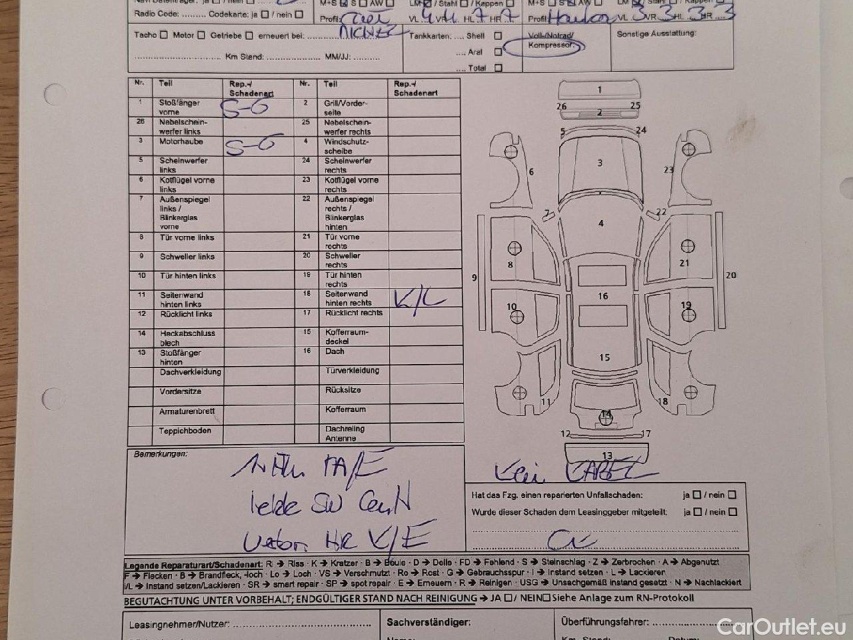 Radio Code: ........ Codekarte: ja ☐ / nein ☐
Profil
VL 4 VR 4 HL 7 HR 7
Profil
VL 3 VR 3 HL 3 HR 3
Tacho ☐ Motor ☐ Getriebe ☐ erneuert bei:
Tankkarten: ... Shell ☐
Voll-/Notrad/
Kompressor
Sonstige Ausstattung:
.... Aral ☐
Km Stand: MM/JJ:
.... Total ☐
Nr. Teil Rep.-/ Schadenart Nr. Teil Rep.-/ Schadenart
1 Stoßfänger vorne S-G 2 Grill/Vorder-seite
26 Nebelschein-werfer links 25 Nebelschein-werfer rechts
3 Motorhaube S-G 4 Windschutz-scheibe
5 Scheinwerfer links 24 Scheinwerfer rechts
6 Kotflügel vorne links 23 Kotflügel vorne rechts
7 Außenspiegel links / Blinkerglas vorne 22 Außenspiegel rechts / Blinkerglas hinten
8 Tür vorne links 21 Tür vorne rechts
9 Schweller links 20 Schweller rechts
10 Tür hinten links 19 Tür hinten rechts
11 Seitenwand hinten links 18 Seitenwand hinten rechts K/L
12 Rücklicht links 17 Rücklicht rechts
14 Heckabschluss blech 15 Kofferraum-deckel
13 Stoßfänger hinten 16 Dach
Dachverkleidung Türverkleidung
Vordersitze Rücksitze
Armaturenbrett Kofferraum
Teppichboden Dachreling Antenne
1
26 25
2
5 24
3
6 23
7 22
4
8 21
9 20
16
10 19
15
11 18
14
12 17
13
Bemerkungen:
K/E
Hat das Fzg. einen reparierten Unfallschaden: ja ☐ / nein ☐
Wurde dieser Schaden dem Leasinggeber mitgeteilt: ja ☐ / nein ☐
Legende Reparaturart/Schadenart: R → Riss · K → Kratzer · B → Beule · D → Delle · FD → Fehlend · S → Steinschlag · Z → Zerbrochen · A → Abgenutzt
F → Flecken · B → Brandfleck, -loch · Lo → Loch · VS → Verschmutzt · Ro → Rost · G → Gebrauchsspur · I → Instand setzen · L → Lackieren
I/L → Instand setzen/Lackieren · SR → smart repair · SP → spot repair · E → Erneuern · R → Reinigen · USG → Unsachgemäß instand gesetzt · N → Nachlackiert
BEGUTACHTUNG UNTER VORBEHALT; ENDGÜLTIGER STAND NACH REINIGUNG → JA ☐ / NEIN ☐ Siehe Anlage zum RN-Protokoll
Leasingnehmer/Nutzer:
Sachverständiger:
Überführungsfahrer:
CarOutlet.eu